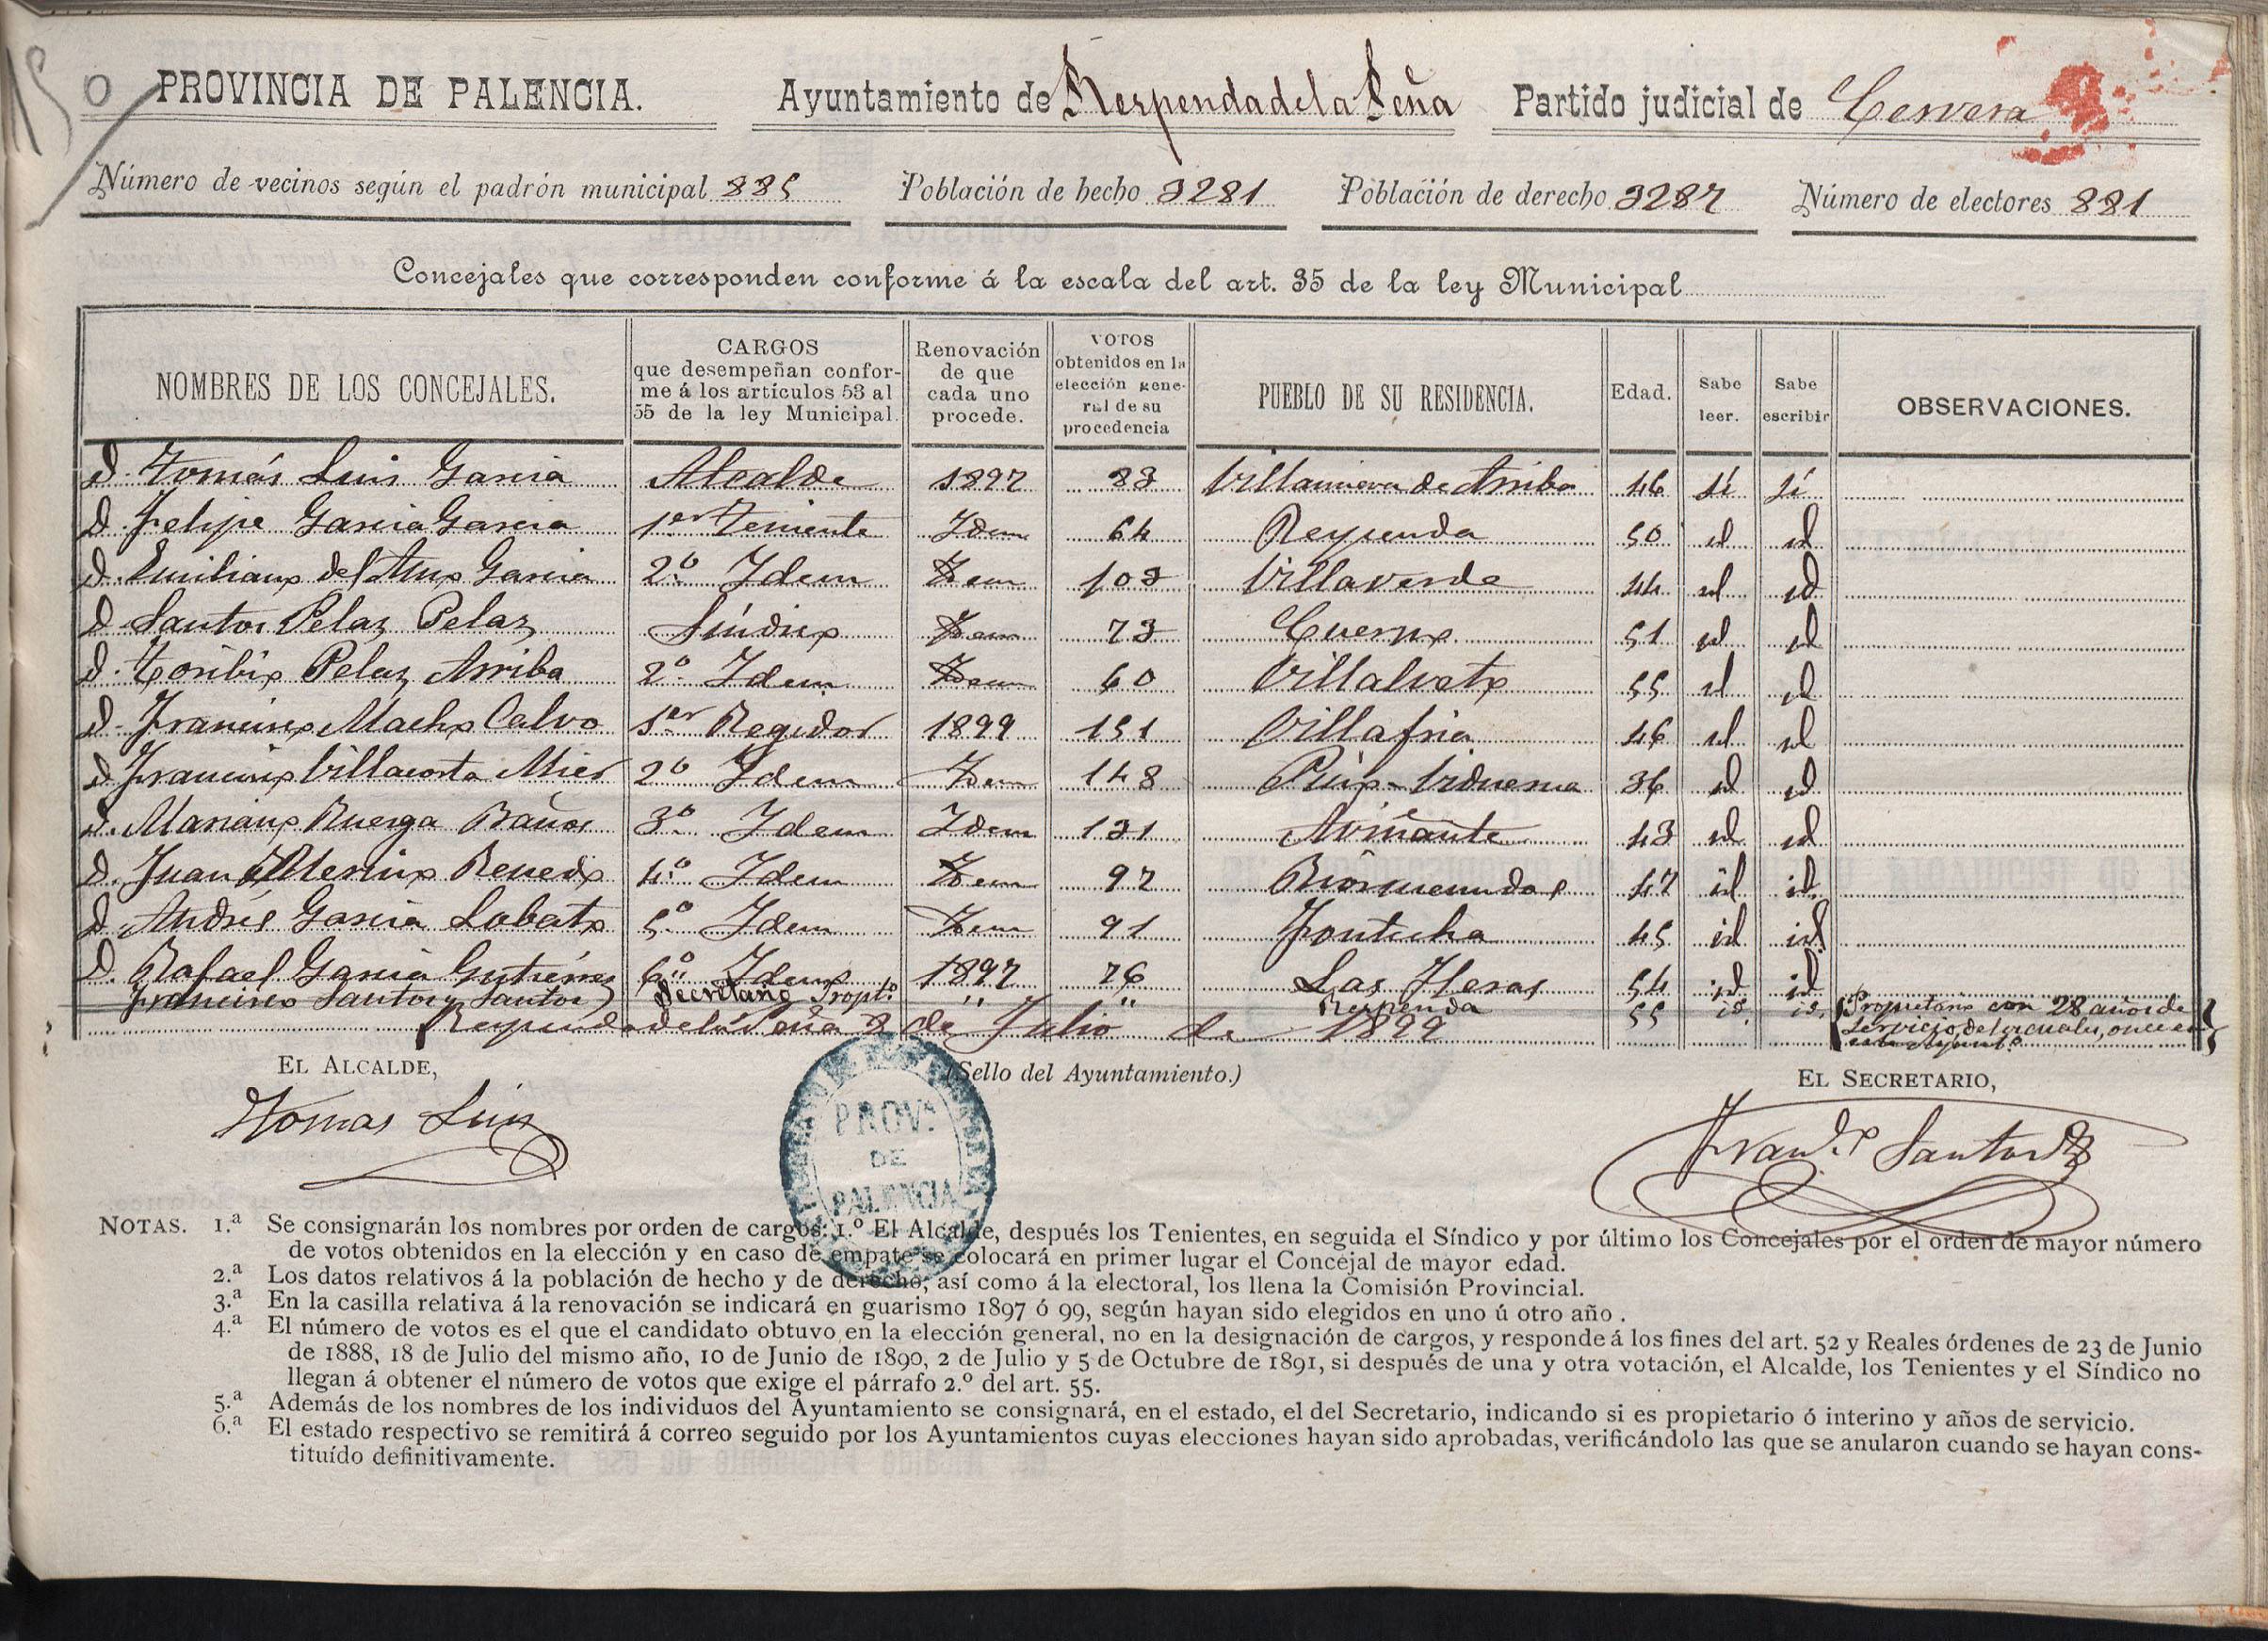 150
PROVINCIA DE PALENCIA. Ayuntamiento de Respenda de la Peña Partido judicial de Cervera
Número de vecinos según el padrón municipal 885 Población de hecho 3281 Población de derecho 3287 Número de electores 881
Concejales que corresponden conforme á la escala del art. 35 de la ley Municipal
NOMBRES DE LOS CONCEJALES. CARGOS que desempeñan conforme á los artículos 53 al 55 de la ley Municipal. Renovación de que cada uno procede. VOTOS obtenidos en la elección general de su procedencia PUEBLO DE SU RESIDENCIA. Edad. Sabe leer. Sabe escribir OBSERVACIONES.
D. Tomás Luis Garcia Alcalde 1897 83 Villanueva de Arriba 46 sí sí
D. Felipe Garcia Garcia 1er Teniente Idem 64 Respenda 50 id id
D. Emiliano del Amo Garcia 2º Idem Idem 103 Villaverde 44 id id
D. Santos Pelaz Pelaz Síndico Idem 73 Cuerno 51 id id
D. Toribio Pelaz Arriba 2º Idem Idem 60 Villalveto 55 id id
D. Francisco Macho Calvo 1er Regidor 1899 151 Villafria 46 id id
D. Francisco Villacorta Mier 2º Idem Idem 148 Pino-Viduerna 36 id id
D. Mariano Ruerga Baños 3º Idem Idem 131 Aviñante 43 id id
D. Juan Merino Renedo 4º Idem Idem 97 Riosmenudos 47 id id
D. Andrés Garcia Lobato 5º Idem Idem 91 Fontecha 45 id id
D. Rafael Garcia Gutiérrez 6º Idem 1897 76 Las Heras 54 id id
Francisco Santos y Santos Secretario Propto. " " Respenda 55 id. id. Propietario con 28 años de
servicio, de los cuales, once en
este Ayunto.
Respenda de la Peña 2 de Julio de 1899
EL ALCALDE, (Sello del Ayuntamiento.) EL SECRETARIO,
Tomas Luis
Franco. Santos
PROVA.
DE
PALENCIA
NOTAS. 1.ª Se consignarán los nombres por orden de cargos: 1.º El Alcalde, después los Tenientes, en seguida el Síndico y por último los Concejales por el orden de mayor número
de votos obtenidos en la elección y en caso de empate se colocará en primer lugar el Concejal de mayor edad.
2.ª Los datos relativos á la población de hecho y de derecho, así como á la electoral, los llena la Comisión Provincial.
3.ª En la casilla relativa á la renovación se indicará en guarismo 1897 ó 99, según hayan sido elegidos en uno ú otro año.
4.ª El número de votos es el que el candidato obtuvo en la elección general, no en la designación de cargos, y responde á los fines del art. 52 y Reales órdenes de 23 de Junio
de 1888, 18 de Julio del mismo año, 10 de Junio de 1890, 2 de Julio y 5 de Octubre de 1891, si después de una y otra votación, el Alcalde, los Tenientes y el Síndico no
llegan á obtener el número de votos que exige el párrafo 2.º del art. 55.
5.ª Además de los nombres de los individuos del Ayuntamiento se consignará, en el estado, el del Secretario, indicando si es propietario ó interino y años de servicio.
6.ª El estado respectivo se remitirá á correo seguido por los Ayuntamientos cuyas elecciones hayan sido aprobadas, verificándolo las que se anularon cuando se hayan cons-
tituído definitivamente.